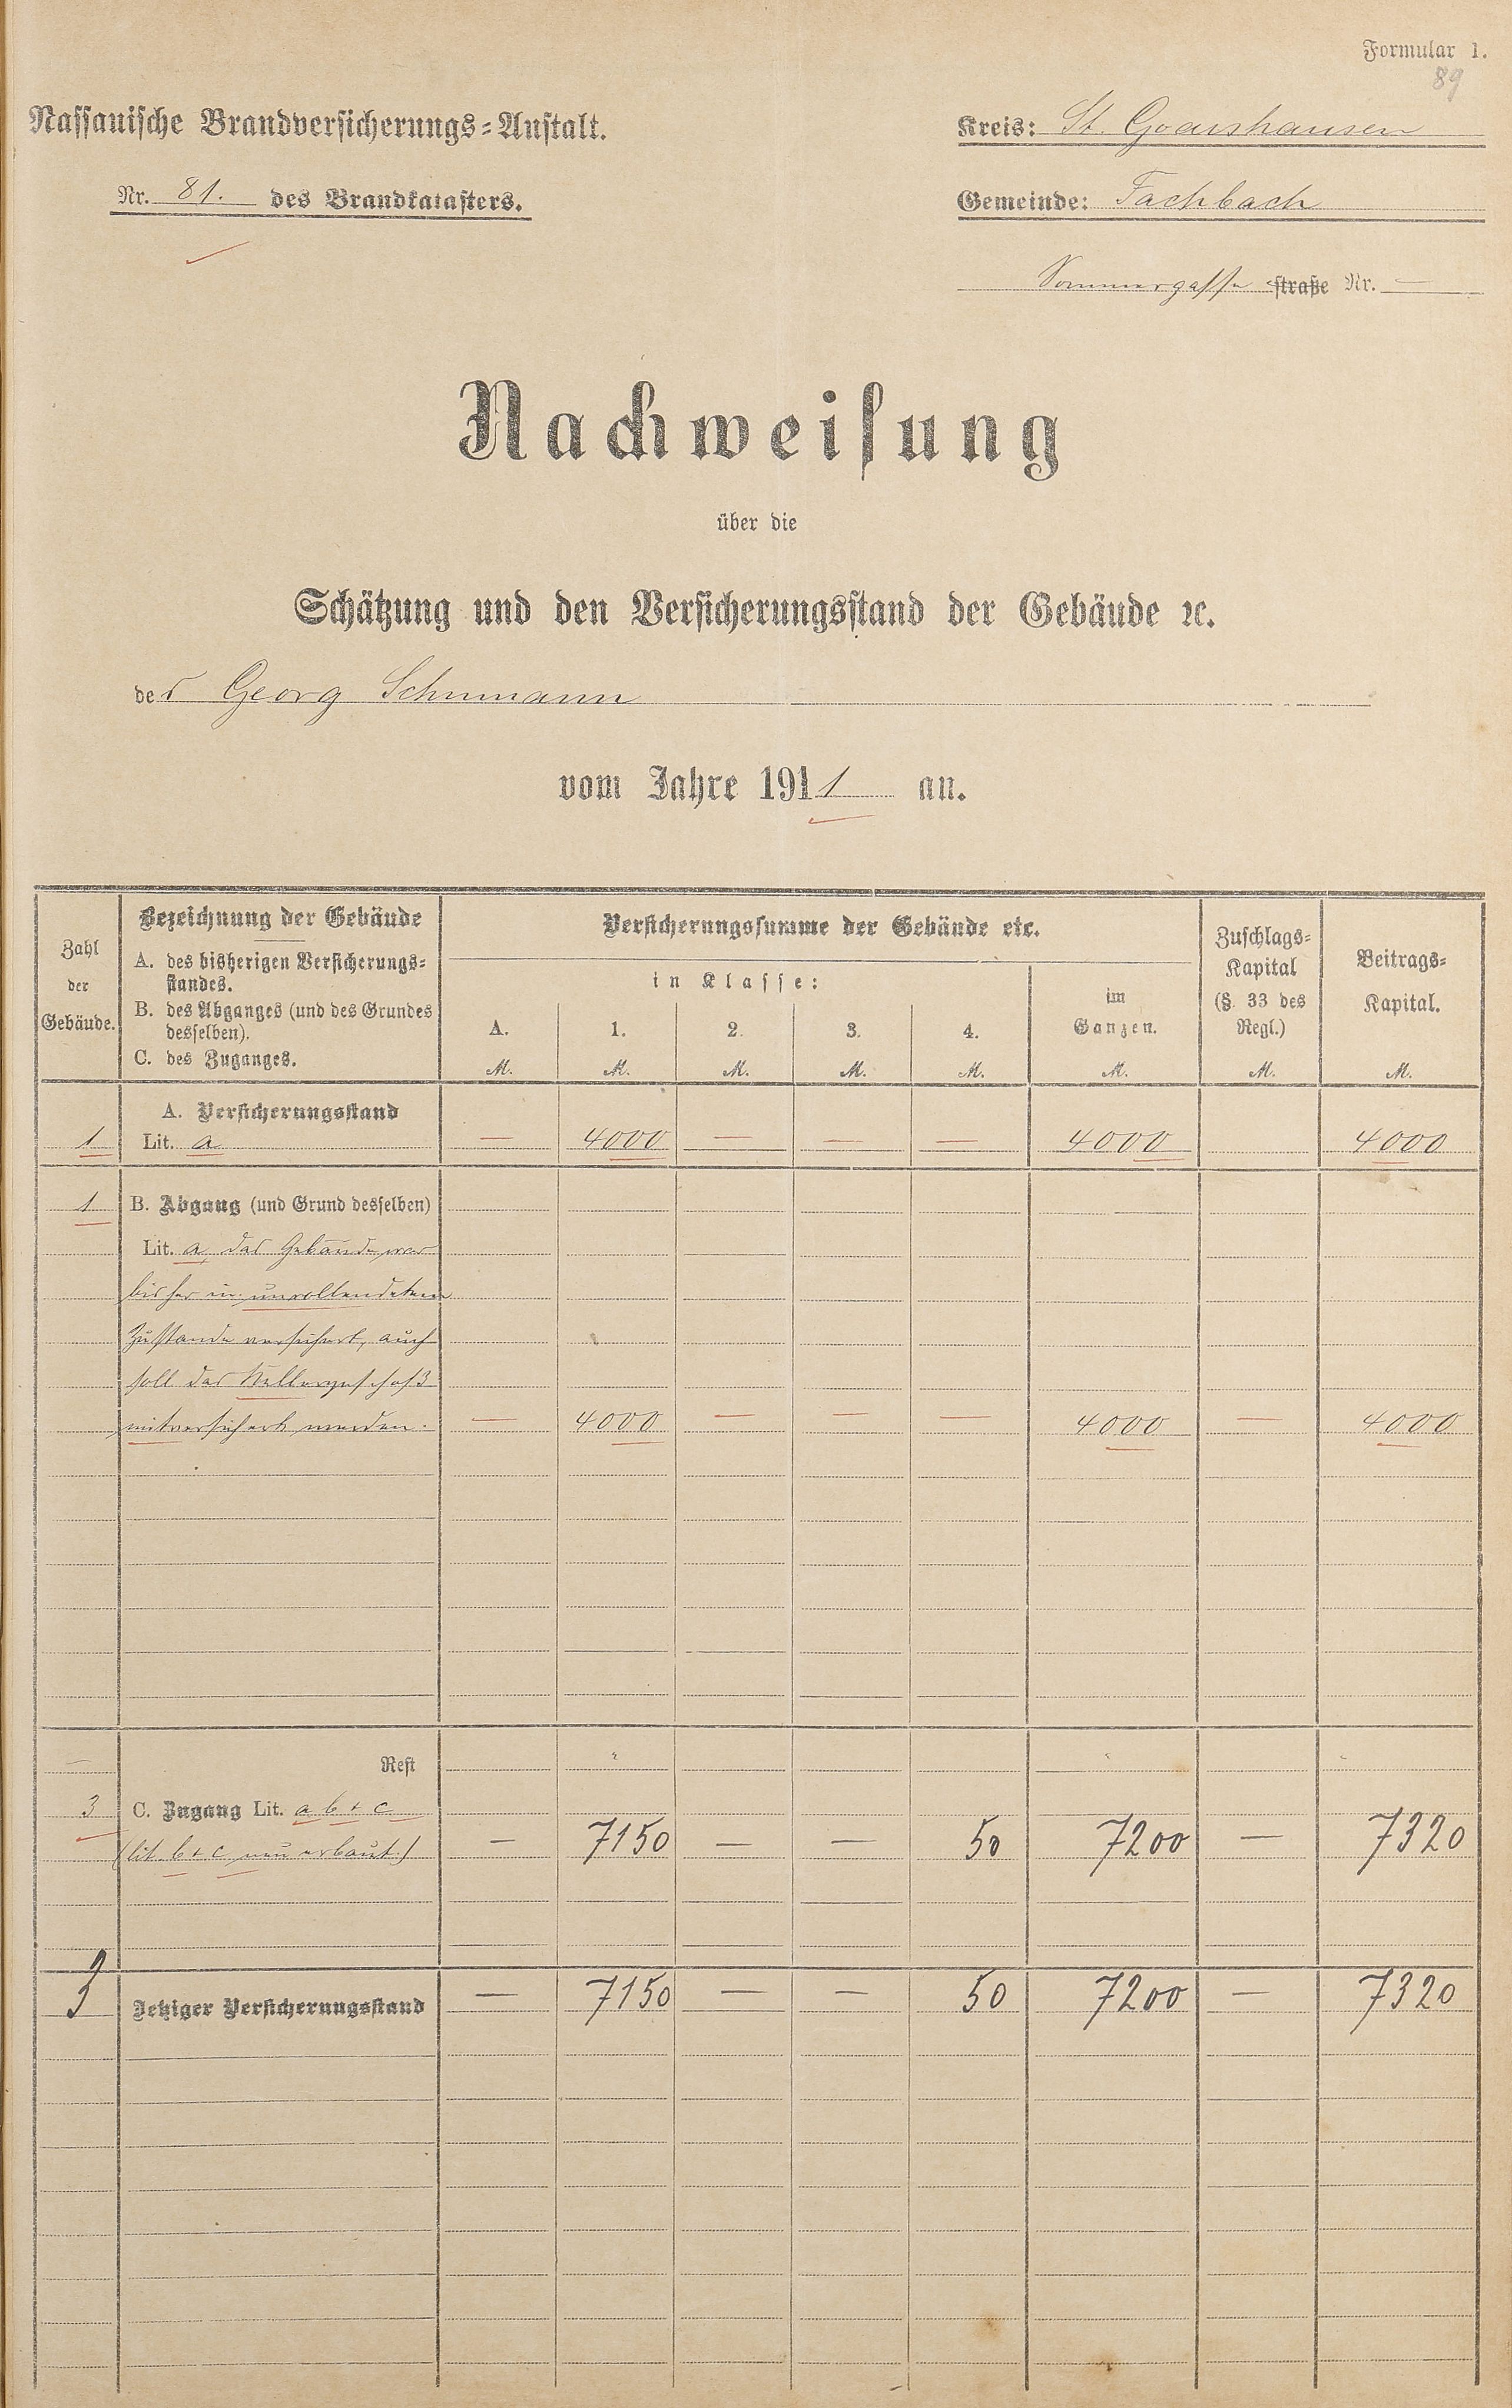 Formular 1.
89
Nassauische Brandversicherungs-Anstalt.
Kreis: St. Goarshausen
Nr. 81. des Brandkatasters.
Gemeinde: Fachbach
Sommergasse straße Nr. —
Nachweisung
über die
Schätzung und den Versicherungsstand der Gebäude ꝛc.
der Georg Schumann
vom Jahre 1911 an.
Zahl der Gebäude.
Bezeichnung der Gebäude
A. des bisherigen Versicherungs-
standes.
B. des Abganges (und des Grundes
desselben).
C. des Zuganges.
Versicherungssumme der Gebäude etc.
in Klasse:
A. 1. 2. 3. 4.
im Ganzen.
Zuschlags-
Kapital
(§. 33 des
Regl.)
Beitrags-
Kapital.
M. M. M. M. M. M. M. M.
A. Versicherungsstand
1 Lit. a — 4000 — — — 4000 4000
1 B. Abgang (und Grund desselben)
Lit. a, das Gebäude war
bisher in unvollendetem
Zustande versichert, auch
soll das Kellergeschoß
mitversichert werden. — 4000 — — — 4000 — 4000
— Rest
3 C. Zugang Lit. a b + c
(lit. b + c neu erbaut.) — 7150 — — 50 7200 — 7320
3 Jetziger Versicherungsstand — 7150 — — 50 7200 — 7320